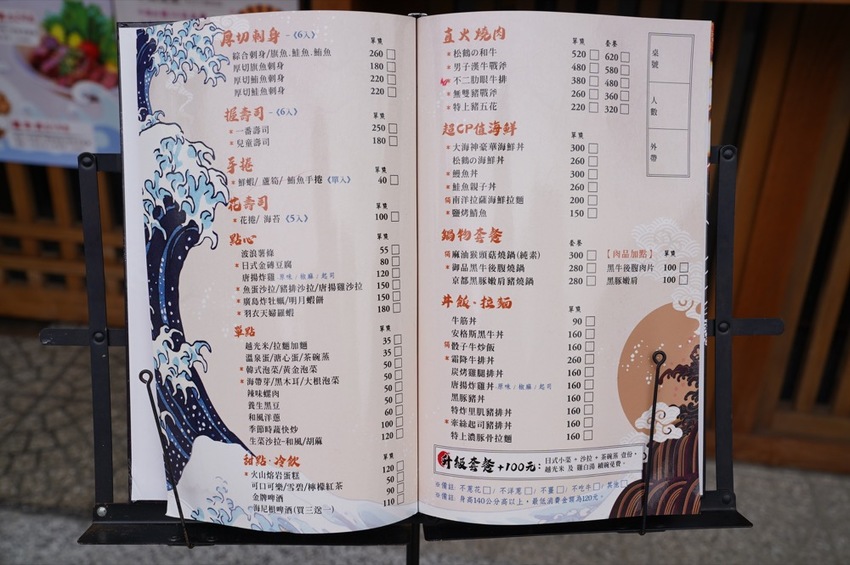 厚切刺身-《6入》 單獎
綜合刺身/旗魚.鮭魚.鮪魚 260
厚切旗魚刺身 180
厚切鮪魚刺身 220
厚切鮭魚刺身 220
握壽司-《6入》 單獎
一番壽司 250
兒童壽司 180
手捲 單獎
鮮蝦/蘆筍/鮪魚手捲《單入》 40
花壽司 單獎
花捲/海苔《5入》 100
點心 單獎
波浪薯條 55
日式金磚豆腐 80
唐揚炸雞-原味/椒麻/起司 120
魚蛋沙拉/豬排沙拉/唐揚雞沙拉 150
廣島炸牡蠣/明月蝦餅 150
羽衣天婦羅蝦 180
單點 單獎
越光米/拉麵加麵 35
溫泉蛋/溏心蛋/茶碗蒸 35
韓式泡菜/黃金泡菜 50
海帶芽/黑木耳/大根泡菜 50
辣味螺肉 50
養生黑豆 50
和風洋蔥 60
季節時蔬快炒 100
生菜沙拉-和風/胡麻 120
甜點·冷飲
火山熔岩蛋糕 120
可口可樂/雪碧/檸檬紅茶 50
金牌啤酒 90
海尼根啤酒(買三送一) 110
直火燒肉 單獎 套餐
松鶴の和牛 520 620
男子漢牛戰斧 480 580
不二肋眼牛排 380 480
無雙豬戰斧 260 360
特上豬五花 220 320
桌號
人數
外帶
超CP值海鮮 單獎
大海神豪華海鮮丼 300
松鶴の海鮮丼 260
鰻魚丼 300
鮭魚親子丼 260
南洋拉薩海鮮拉麵 200
鹽烤鯖魚 150
鍋物套餐 套餐
麻油猴頭菇燒鍋(純素) 300
御品黑牛後腹燒鍋 300
京都黑豚嫩肩豬燒鍋 280
【肉品加點】 單獎
黑牛後腿肉片 100
黑豚嫩肩 100
丼飯·拉麵 單獎
牛筋丼 90
安格斯黑牛丼 160
骰子牛炒飯 160
霜降牛排丼 260
炭烤雞腿排丼 160
唐揚炸雞丼-原味/椒麻/起司 160
黑豚豬丼 160
特炸里肌豬排丼 160
牽絲起司豬排丼 160
特上濃豚骨拉麵 160
升級套餐+100元: 日式小菜+沙拉+茶碗蒸 壹份,
越光米 及 雞白湯 續碗免費。
※備註:不蔥花□/不洋蔥□/不薑□/不吃牛□/其他□
※備註:身高140公分高以上,最低消費金額為120元。